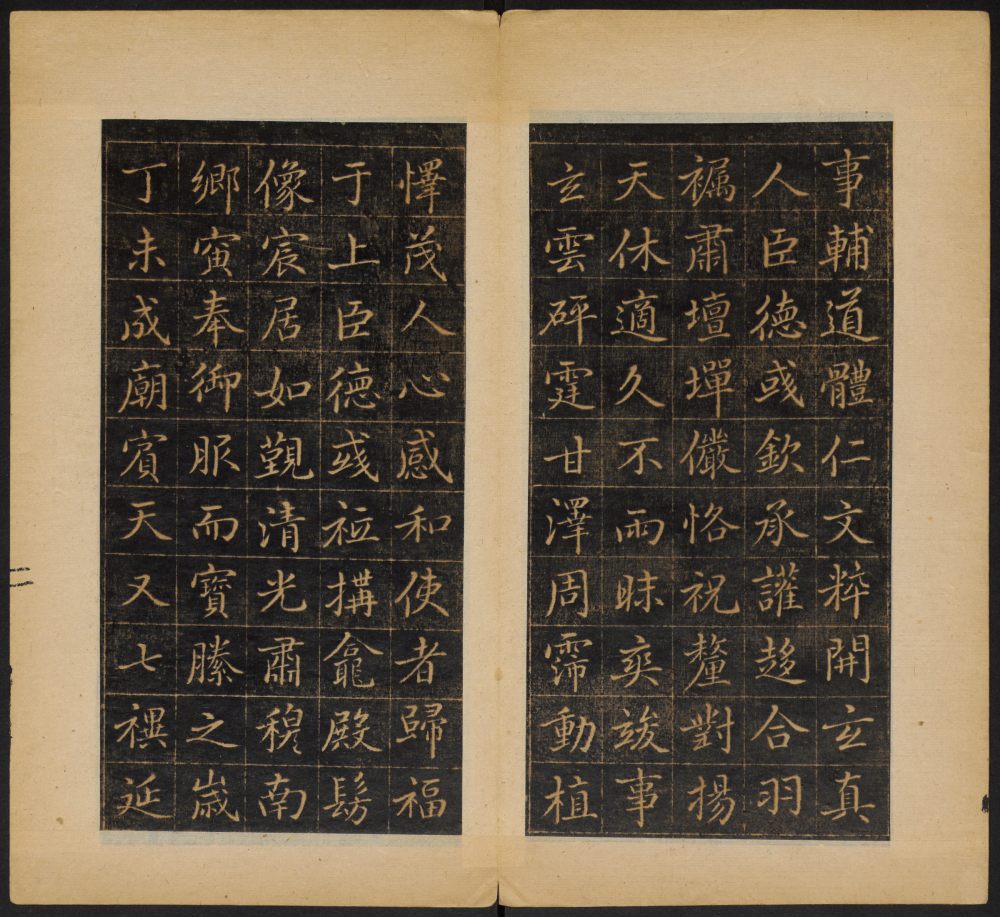 事輔道體仁文粹開玄真
人臣德彧欽承讙趍合羽
褫肅壇墠儼恪祝釐對揚
天休適久不雨昧爽竣事
玄雲砰霆甘澤周霈動植
懌茂人心感和使者歸福
于上臣德彧祗搆龕殿髣
像宸居如觐清光肅穆南
鄉寅奉御服而寶縢之歲
丁未成廟賓天又七禩延